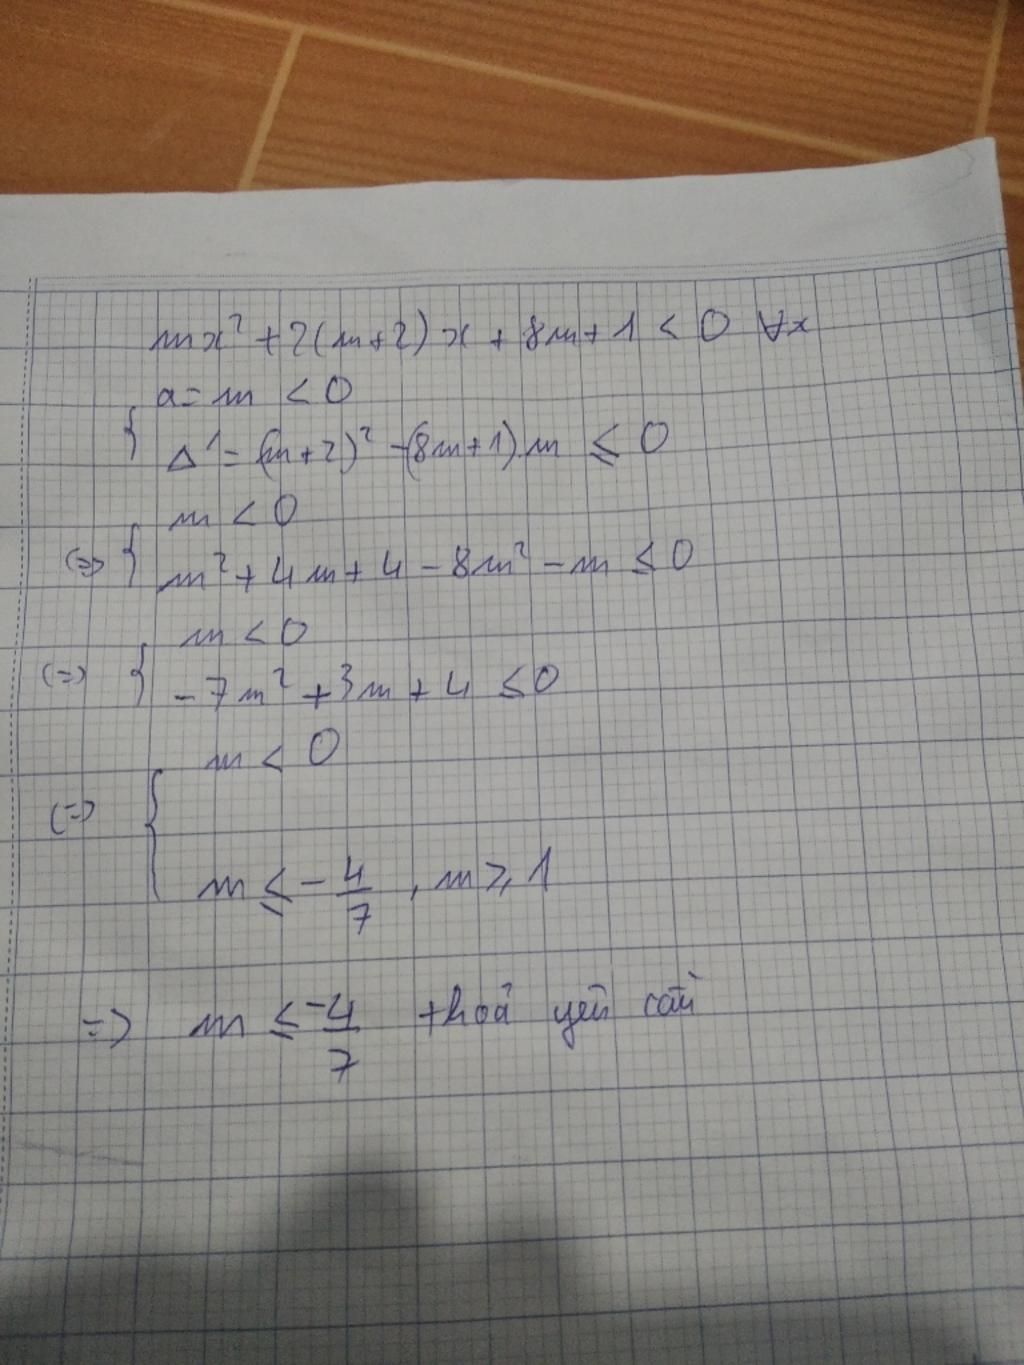 mx² + 2(m+2)x + 8m+1 < 0 ∀x
{ a = m < 0
Δ' = (m+2)² - (8m+1).m ≤ 0
m < 0
(=> { m² + 4m + 4 - 8m² - m ≤ 0
m < 0
(=) { -7m² + 3m + 4 ≤ 0
m < 0
(=> {
m ≤ -4/7 , m ≥ 1
=> m ≤ -4/7 thoả yêu cầu